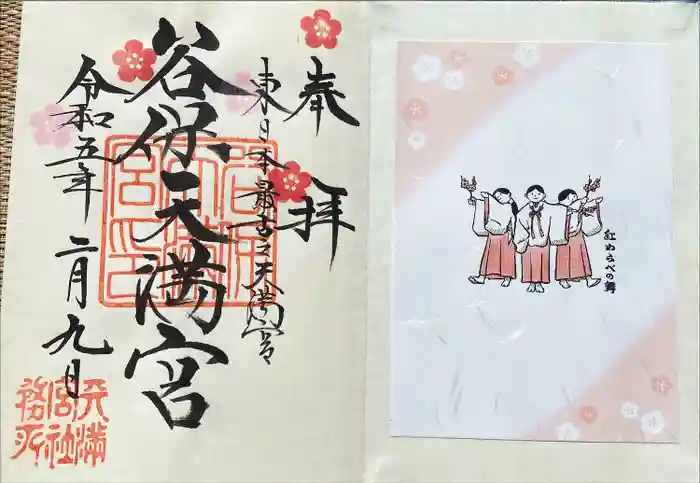 奉拝
東日本最古之天満宮
谷保天満宮
令和五年二月九日
天満
宮社
務所
紅わらべの舞